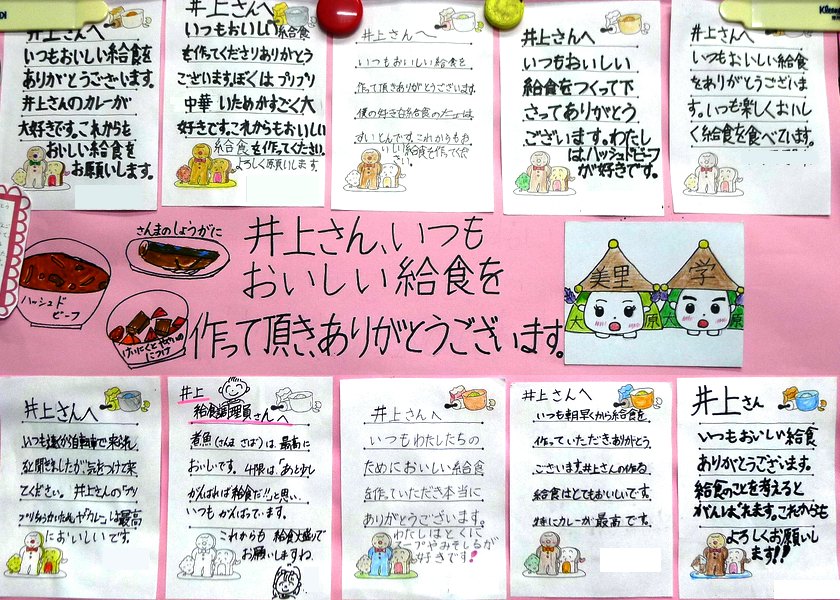 井上さんへ
いつもおいしい給食を
ありがとうございます。
井上さんのカレーが
大好きです。これからも
おいしい給食を
お願いします。
井上さんへ
いつもおいしい給食
を作てくださりありがとう
ございます。ぼくは プリプリ
中華 いためがすごく大
好きです。これからもおいしい
給食を作てください。
よろしく願いします。
井上さんへ
いつもおいしい給食を
作って頂きありがとうございます。
僕の好きな給食の
すいとんです。これからもお
いしい給食を作ってくだ
さい。
井上さんへ
いつもおいしい
給食をつくって下
さってありがとう
ございます。わたし
は、ハッシュドビーフ
が好きです。
井上さんへ
いつもおいしい給食
をありがとうございま
す。いつも楽しくおいし
く給食を食べています。
さんまのしょうがに
ハッシュド
ビーフ
につけ
井上さん、いつも
おいしい給食を
作って頂き、ありがとうございます。
美里 学
大 原 大 原
井上さんへ
いつも遠くから自転車で来られ
ると聞きましたが気をつけて来
てください。井上さんの「プリ
は最高
においしいです。
井上
給食調理員さんへ
煮魚(さんま さば)は、最高に
おいしいです。4限は、あと少し
がんばれば給食だ!!と思い、
いつも がんばっています。
これからも 給食大盛りで
お願いしますね。
井上さんへ
いつもわたしたちの
ためにおいしい給食
を作っていただき本当に
ありがとうございます。
わたしはとくに
スープやみそしるが
好きです!
井上さんへ
いつも朝早くから給食を
作っていただきありがとう
ございます。井上さんの作る
給食はとてもおいしいです。
特にカレーが最高です。
井上さん
いつもおいしい給食
ありがとうございます。
給食のことを考えると
がんばれます。これからも
よろしくお願いし
ます!!